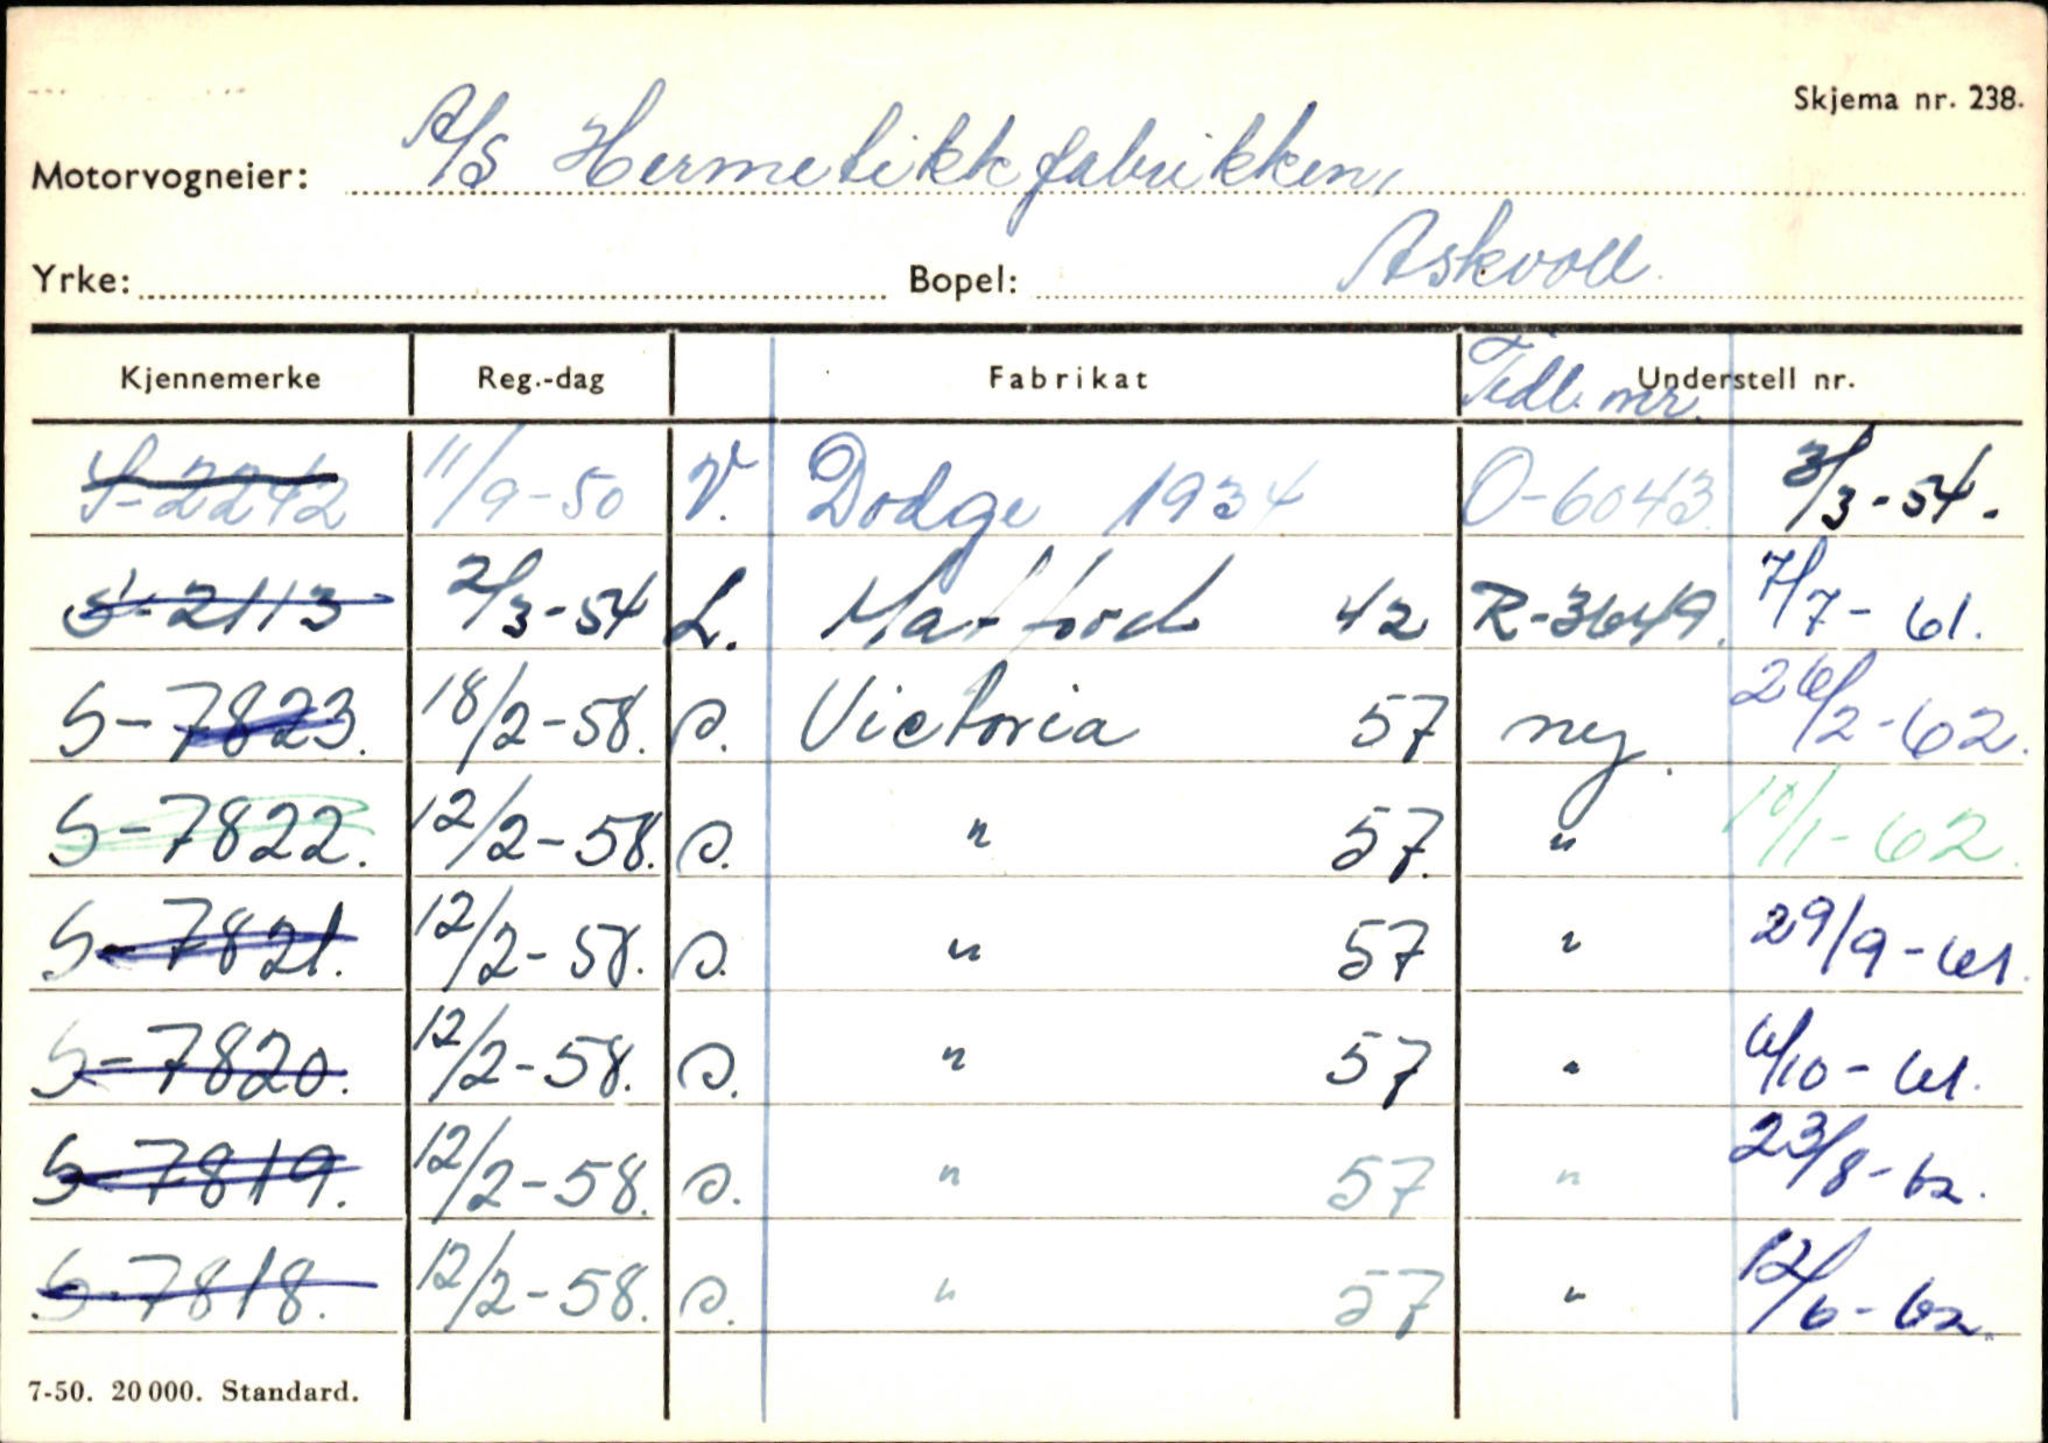 Skjema nr. 238.
Motorvogneier: A/S Hermetikkfabrikken,
Yrke: Bopel: Askvoll
Kjennemerke Reg.-dag Fabrikat Tidl. nr. Understell nr.
S-2242 11/9-50 V. Dodge 1934 O-6043. 3/3-54.
S-2113 2/3-54 L. Matford 42 R-3649. 7/7-61.
S-7823. 18/2-58. s. Victoria 57 ny. 26/2-62.
S-7822. 12/2-58. s. " 57. " 10/1-62.
S-7821. 12/2-58. s. " 57 " 29/9-61.
S-7820. 12/2-58. s. " 57 " 6/10-61.
S-7819. 12/2-58. s. " 57 " 23/8-62.
S-7818. 12/2-58. s. " 57 " 12/6-62.
7-50. 20 000. Standard.